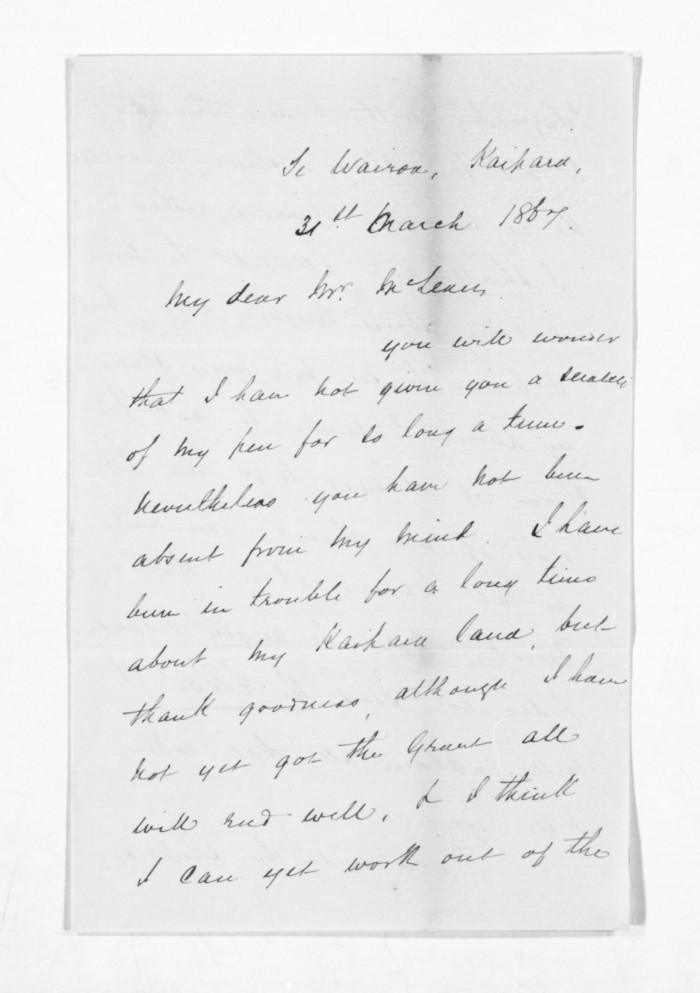 Te Wairoa, Kaipara,
31st March 1867.
My dear Mr. McLean.
you will wonder
that I have not given you a scratch
of my pen for so long a time.
nevertheless you have not been
absent from my mind. I have
been in trouble for a long time
about my Kaipara land, but
thank goodness, although I have
not yet got the Grant all
will end well, & I think
I can yet work out of the